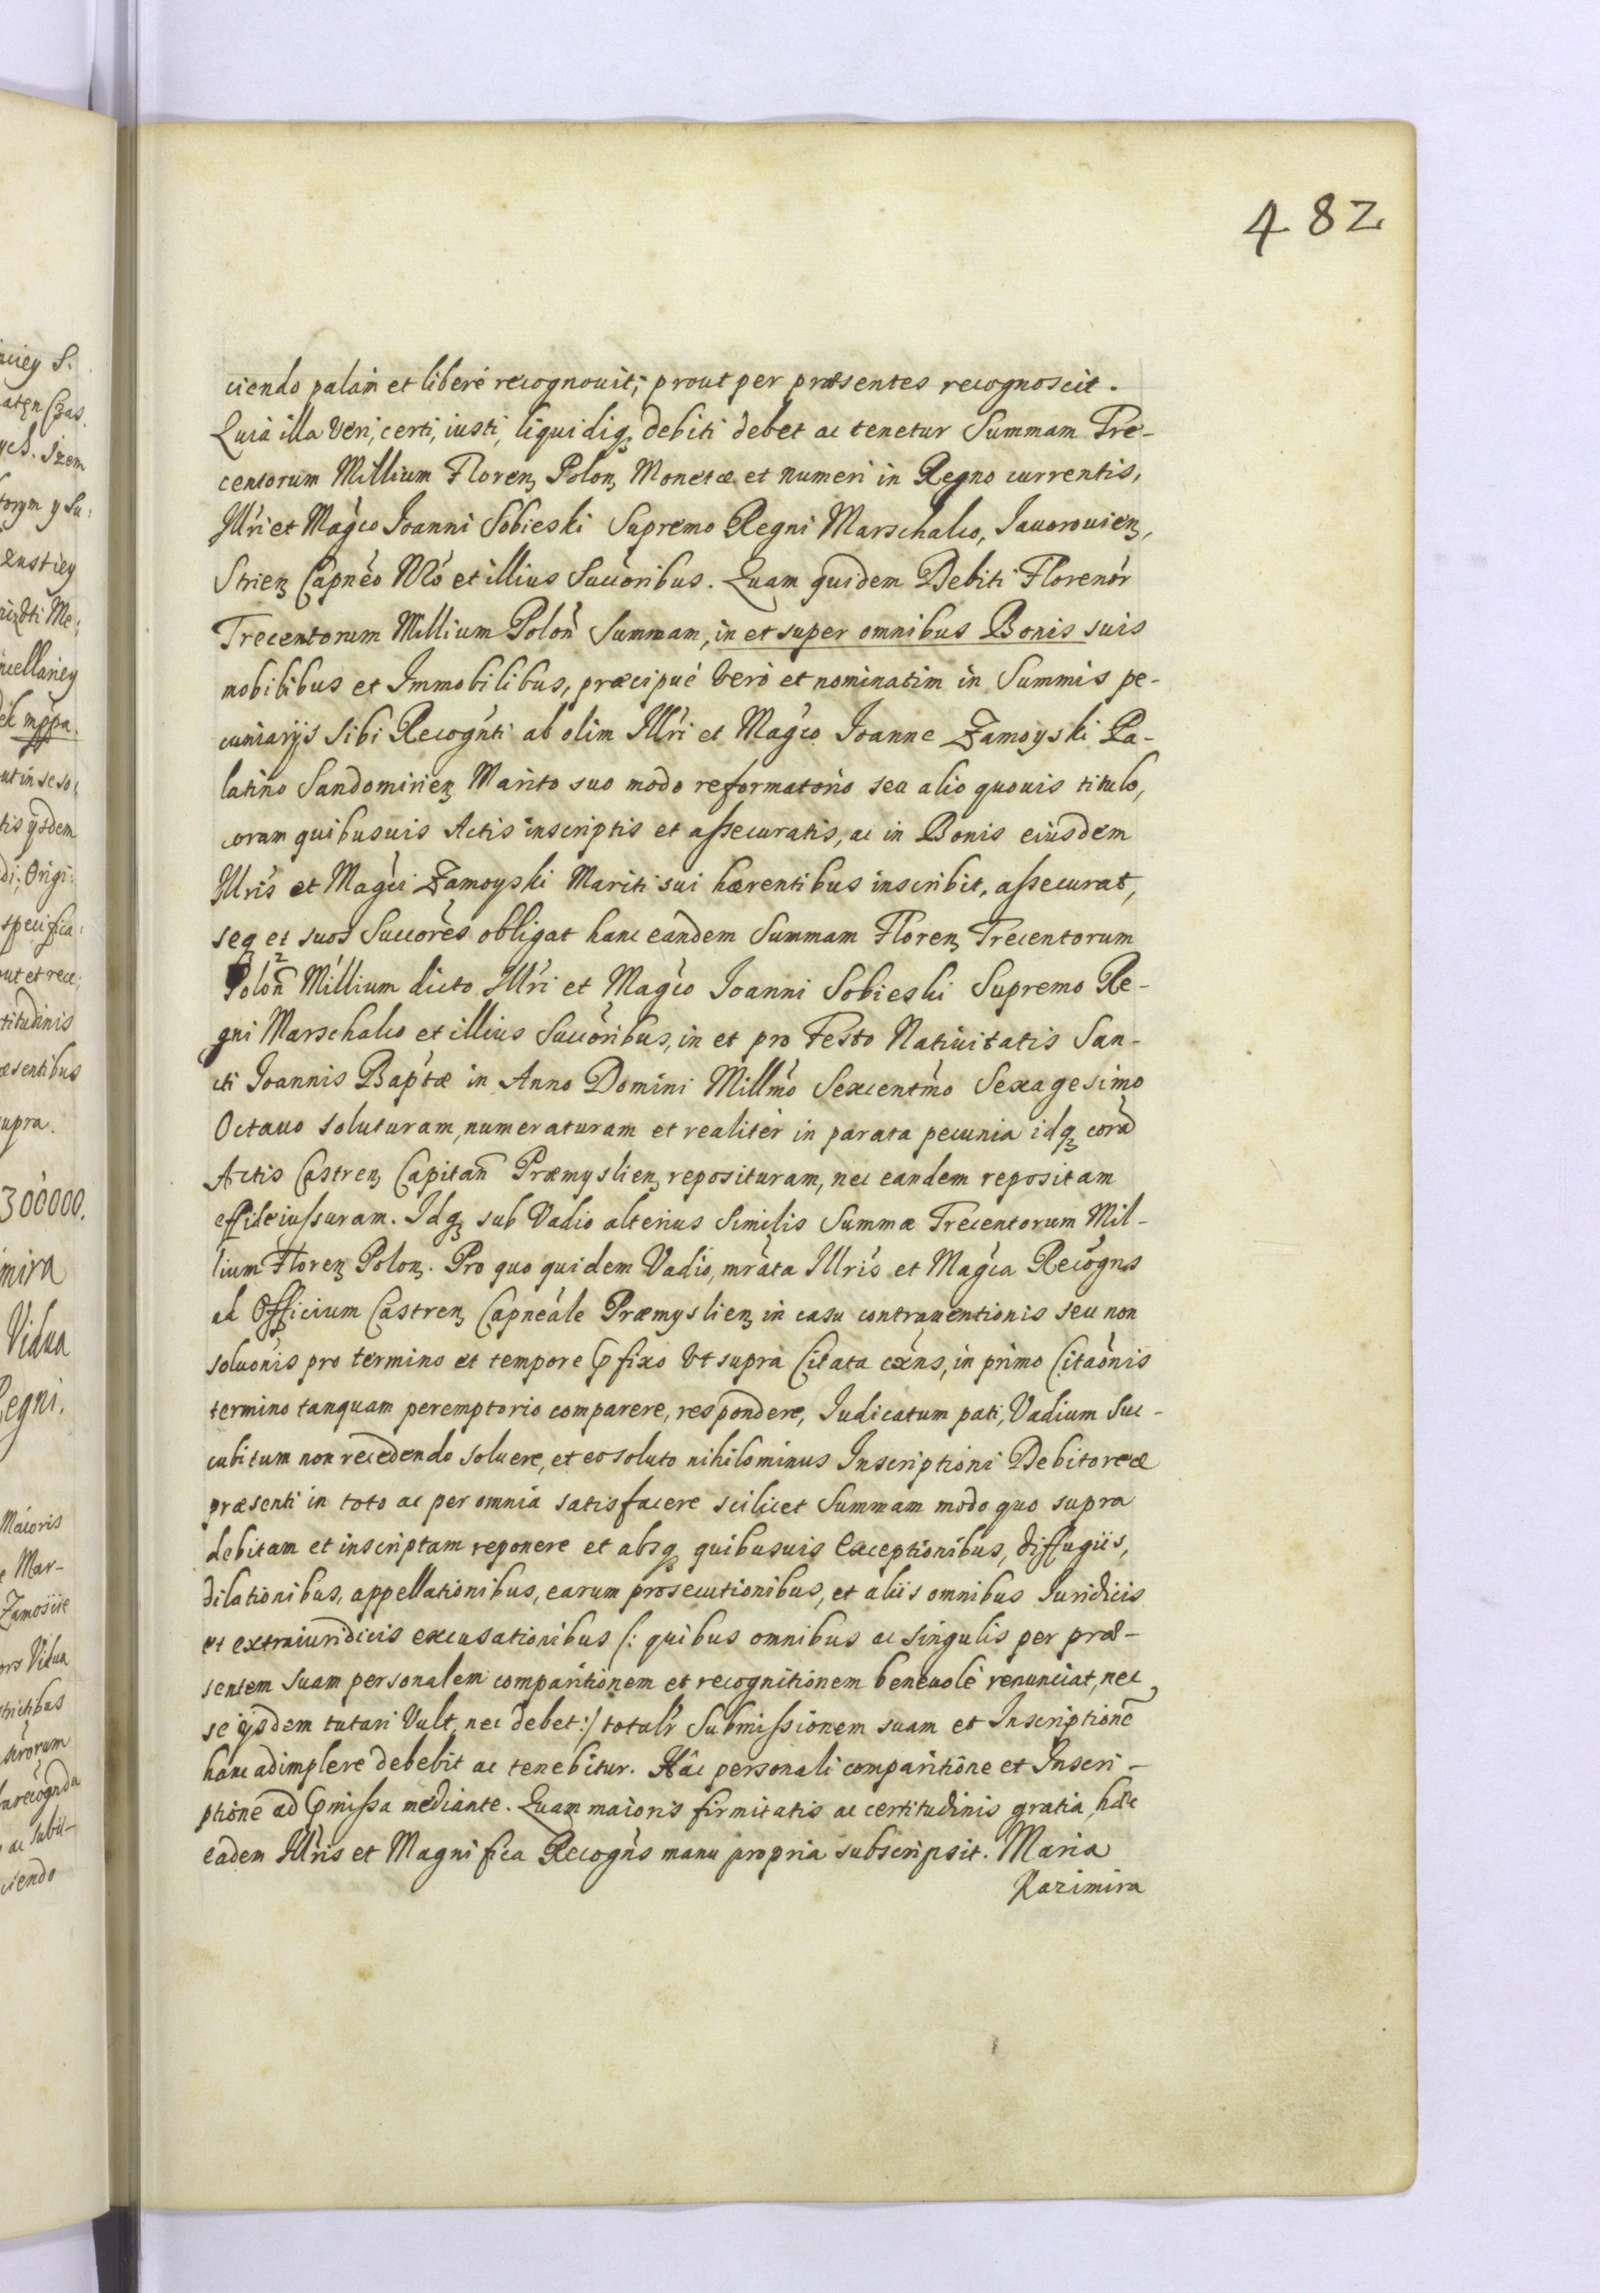 482
ciendo palam et liberé recognouit; prout per præsentes recognoscit.
Quia illa veri, certi, iusti, liquidiq; debiti debet ac tenetur Summam Tre-
centorum Millium Floren; Polon; Monetæ et numeri in Regno currentis,
Illri et Magco Joanni Sobieski Supremo Regni Marschalco, Jauorouien;
Strien; Capneo Nro et illius Succoribus. Quam quidem Debiti Florenor
Trecentorum Millium Polon Summam, in et super omnibus Bonis suis
mobilibus et Immobilibus, præcipué vero et nominatim in Summis pe-
cuniarijs sibi Recognti ab olim Illri et Magco Joanne Zamoyski Pa-
latino Sandomirien; Marito suo modo reformatorio seu alio quouis titulo,
coram quibusuis Actis inscriptis et assecuratis, ac in Bonis eiusdem
Illris et Magci Zamoyski Mariti sui hærentibus inscribit, assecurat,
seq; et suos Succores obligat hanc eandem Summam Floren; Trecentorum
Polon 2 Millium dicto Illri et Magco Joanni Sobieski Supremo Re-
gni Marschalco et illius Succoribus, in et pro Festo Natiuitatis San-
cti Joannis Baptæ in Anno Domini Millmo Sexcentmo Sexagesimo
Octauo soluturam, numeraturam et realitèr in parata pecunia idq; corã
Actis Castren; Capitan Præmyslien; reposituram, nec eandem repositam
effideiussuram. Idq; sub Vadio alterius similis Summæ Trecentorum Mil-
lium Floren; Polon;. Pro quo quidem Vadio, mrata Illris et Magca Recogns
ad Officium Castren; Capneale Præmyslien; in casu contrauentionis seu non
soluonis pro termino et tempore pfixo vt supra Citata exns, in primo Citaonis
termino tanquam peremptorio comparere, respondere, Iudicatum pati, Vadium suc-
cubitum non recedendo soluere, et eo soluto nihilominus Inscriptioni Debitoreæ
præsenti in toto ac per omnia satisfacere scilicet Summam modo quo supra
debitam et inscriptam reponere et absq; quibusuis exceptionibus, diffugiis,
dilationibus, appellationibus, earum prosecutionibus, et aliis omnibus Iuridicis
et extraiuridicis excusationibus /: quibus omnibus ac singulis per præ-
sentem suam personalem comparitionem et recognitionem beneuolé renunciat, nec
se ijsdem tutari vult, nec debet :/ totalr Submissionem suam et Inscriptionẽ
hanc adimplere debebit ac tenebitur. Hâc personali comparitione et Inscri-
ptione ad pmissa mediante. Quam maioris firmitatis ac certitudinis gratia, hæc
eadem Illris et Magnifica Recogns manu propria subscripsit. Maria
Kazimira
300000.
Vidua
Regni.
Maioris
Mar-
Vidua
ac subii-
ciendo